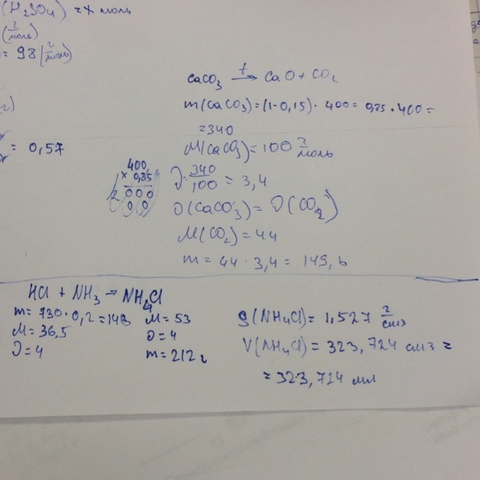 (H₂SO₄) = x моль
(г/моль)
= 98 (г/моль)
= 0,57
CaCO₃ →t CaO + CO₂
m(CaCO₃) = (1-0,15) · 400 = 0,85 · 400 =
= 340
M(CaCO₃) = 100 г/моль
400
× 0,85
2000
00
ν = 340/100 = 3,4
ν(CaCO₃) = ν(CO₂)
M(CO₂) = 44
m = 44 · 3,4 = 149,6
HCl + NH₃ → NH₄Cl
m = 730 · 0,2 = 146
M = 36,5
ν = 4
M = 53
ν = 4
m = 212 г
ρ(NH₄Cl) = 1,527 г/см3
V(NH₄Cl) = 323,724 см3 =
= 323,724 мл